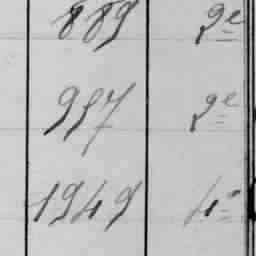 889 2e
957 2e
1949 4e